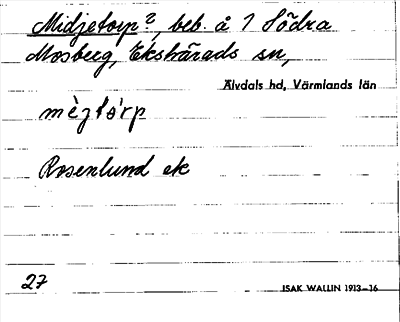 Midjetorp?, beb. å 1 Södra
Mosberg, Ekshärads sn,
Älvdals hd, Värmlands län
mèjtórp
Rosenlund ek
27
ISAK WALLIN 1913–16